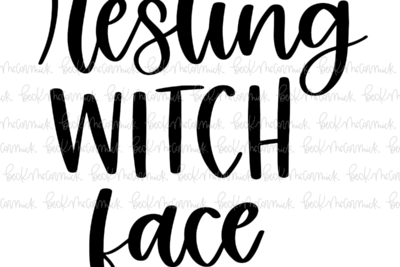 resting
WITCH
face